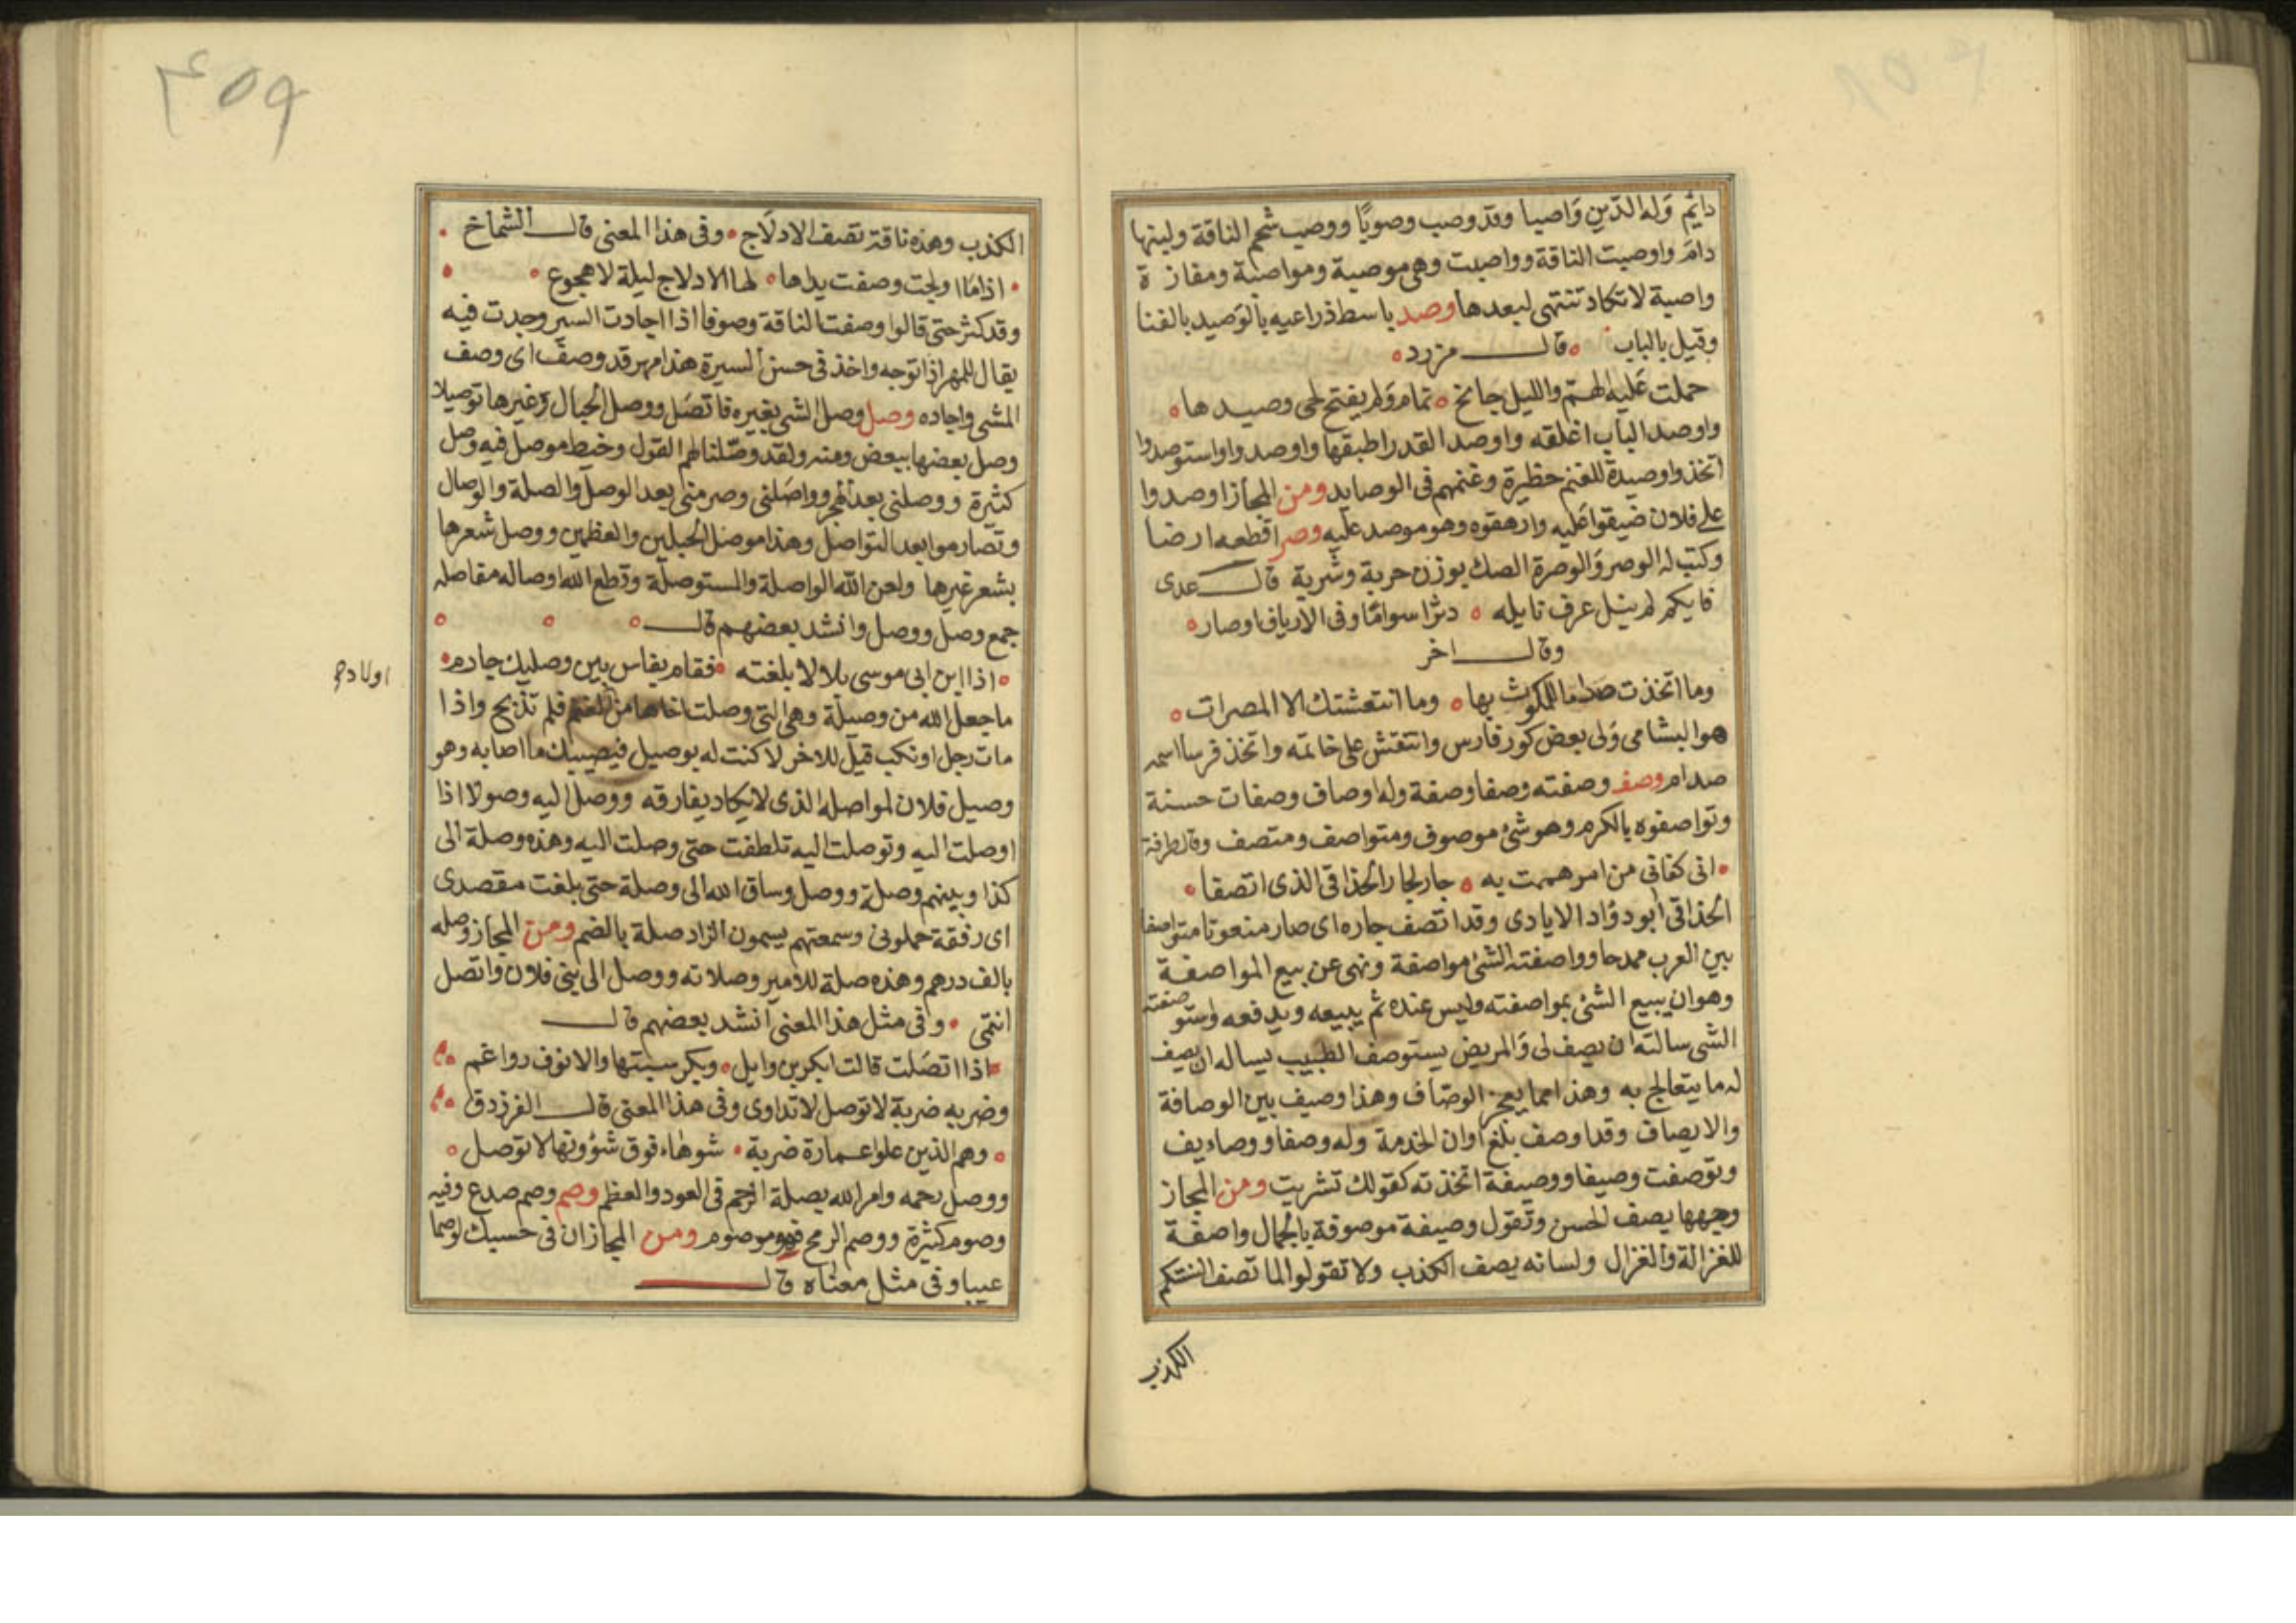 دايم وله الدين واصبا وقد وصب وصوبا ووصب شحم الناقة ولبنها
دام واوصبت الناقة وواصبت وهي موصبة ومواصبة ومفازة
واصبة لا تكاد تنتهى لبعدها وصد باسط ذراعيه بالوصيد بالفنا
وقيل بالباب قال مزرد
حملت عليه الهم والليل جانح تمام ولم يفتح لحى وصيدها
واوصد الباب اغلقه واوصد القدر اطبقها واوصدوا واستوصدوا
اتخذوا وصيدة للغنم حظيرة وغنمهم في الوصايد ومن المجاز اوصدوا
على فلان ضيقوا عليه وارهقوه وهو موصد عليه وصر اقطعه ارضا
وكتب له الوصر والوصرة الصك بوزن جربة وشربة قال عدى
فايكم لم ينل عرف نايله دثرا سواما وفى الارياف اوصار
وقال اخر
وما اتخذت صداما للمكوث بها وما انتعشتك الا المصرات
هو البشامى ولى بعض كور فارس وانتقش على خاتمه واتخذ فرسا اسمه
صدام وصف وصفته وصفا وصفة وله اوصاف وصفات حسنة
وتواصفوه بالكرم وهو شئ موصوف ومتواصف ومتصف وقال طرفة
انى كفانى من امر هممت به جار لجار الحذاقى الذى اتصفا
الحذاقى أبو دؤاد الايادى وقد اتصف جاره اى صار منعوتا متواصفا
بين العرب ممدحا وواصفته الشئ مواصفة ونهى عن بيع المواصفة
وهو ان يبيع الشئ بمواصفته وليس عنده ثم يبيعه ويدفعه واستوصفته
الشى سالته ان يصف لى والمريض يستوصف الطبيب يساله ان يصف
له ما يتعالج به وهذا مما يعجز الوصاف وهذا وصيف بين الوصافة
والايصاف وقد اوصف بلغ اوان الخدمة وله وصفا ووصاديف
وتوصفت وصيفا ووصيفة اتخذته كقولك تشريت ومن المجاز
وجهها يصف الحسن وتقول وصيفة موصوفة بالجمال واصفة
للغزالة والغزال ولسانه يصف الكذب ولا تقولوا لما تصف السنتكم
الكذب
۴۵۹
الكذب وهذه ناقة تصف الادلاج وفى هذا المعنى قال الشماخ
اذا ما ادلجت وصفت يداها لها الادلاج ليلة لا هجوع
وقد كثر حتى قالوا وصفت الناقة وصوفا اذا اجادت السير وجدت فيه
يقال للمهر اذا توجه واخذ فى حسن السيرة هذا مهر قد وصف اى وصف
المشى واجاده وصل وصل الشى بغيره فاتصل ووصل الحبال وغيرها توصيلا
وصل بعضها ببعض ومنه ولقد وصلنا لهم القول وخيط موصل فيه وصل
كثيرة ووصلنى بعد الهجر وواصلنى وصرمنى بعد الوصل والصلة والوصال
وتصارموا بعد التواصل وهذا موصل الحبلين والعظمين ووصل شعرها
بشعر غيرها ولعن الله الواصلة والمستوصلة وقطع الله اوصاله مفاصله
جمع وصل ووصل وانشد بعضهم قال
اذا ابن ابى موسى بلالا بلغته فقام بفاس بين وصليك جادم
ما جعل الله من وصيلة وهى التى وصلت اخاها من الغنم فلم تذبح واذا
مات رجل او نكب قيل للاخر لا كنت له بوصيل فيصيبك ما اصابه وهو
وصيل فلان لمواصله الذى لا يكاد يفارقه ووصل اليه وصولا اذا
اوصلت اليه وتوصلت اليه تلطفت حتى وصلت اليه وهذه وصلة الى
كذا وبينهم وصلة ووصل وساق الله الى وصلة حتى بلغت مقصدى
اى رفقة حملونى وسمعتهم يسمون الزاد صلة بالضم ومن المجاز وصله
بالف درهم وهذه صلة للامير وصلاته ووصل الى بنى فلان واتصل
انتمى وفى مثل هذا المعنى انشد بعضهم قال
اذا اتصلت قالت ابكر بن وايل وبكر سبتها والانوف رواغم
وضربه ضربة لا توصل لا تداوى وفى هذا المعنى قال الفرزدق
وهم الذين علوا عمارة ضربة شوهاء فوق شؤونها لا توصل
ووصل رحمه وامر الله بصلة الرحم فى العود والعظم وصم وصم صدع وفيه
وصوم كثيرة ووصم الرمح فهو موصوم ومن المجاز ان فى حسبك لوصما
عيبا وفى مثل معناه قال